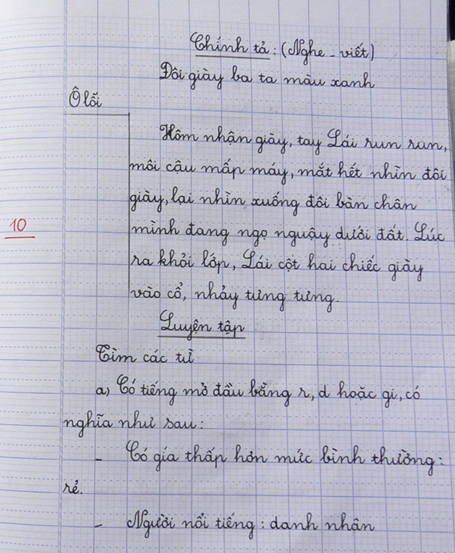 Chính tả: (Nghe - viết)
Đôi giày ba ta màu xanh
Ô lỗi
Hôm nhận giày, tay Lái run run,
môi cậu mấp máy, mắt hết nhìn đôi
giày, lại nhìn xuống đôi bàn chân
mình đang ngọ nguậy dưới đất. Lúc
10
ra khỏi lớp, Lái cột hai chiếc giày
vào cổ, nhảy tưng tưng.
Luyện tập
Tìm các từ
a) Có tiếng mở đầu bằng r, d hoặc gi, có
nghĩa như sau:
- Có gía thấp hơn mức bình thường:
rẻ.
- Người nổi tiếng: danh nhân